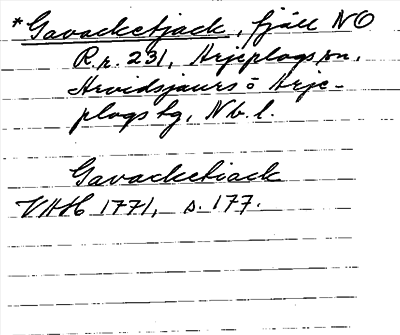 *Gavacketjack, fjäll NO
R.r. 231, Arjeplogs sn,
Arvidsjaurs o Arje-
plogs tg, Nb. l.
Gavacketiack
VAH 1771, s. 177.